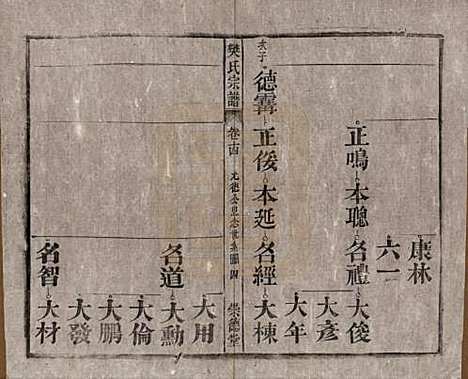 康林
六一
正鳴 本聰 名禮 大俊
大彥
大年
次子 德霱 正俊 本延 名經 大棟
樊氏宗譜 卷十四 元德公
崇德堂
大用
名道 大勳
大倫
大鵬
大發
名智 大材